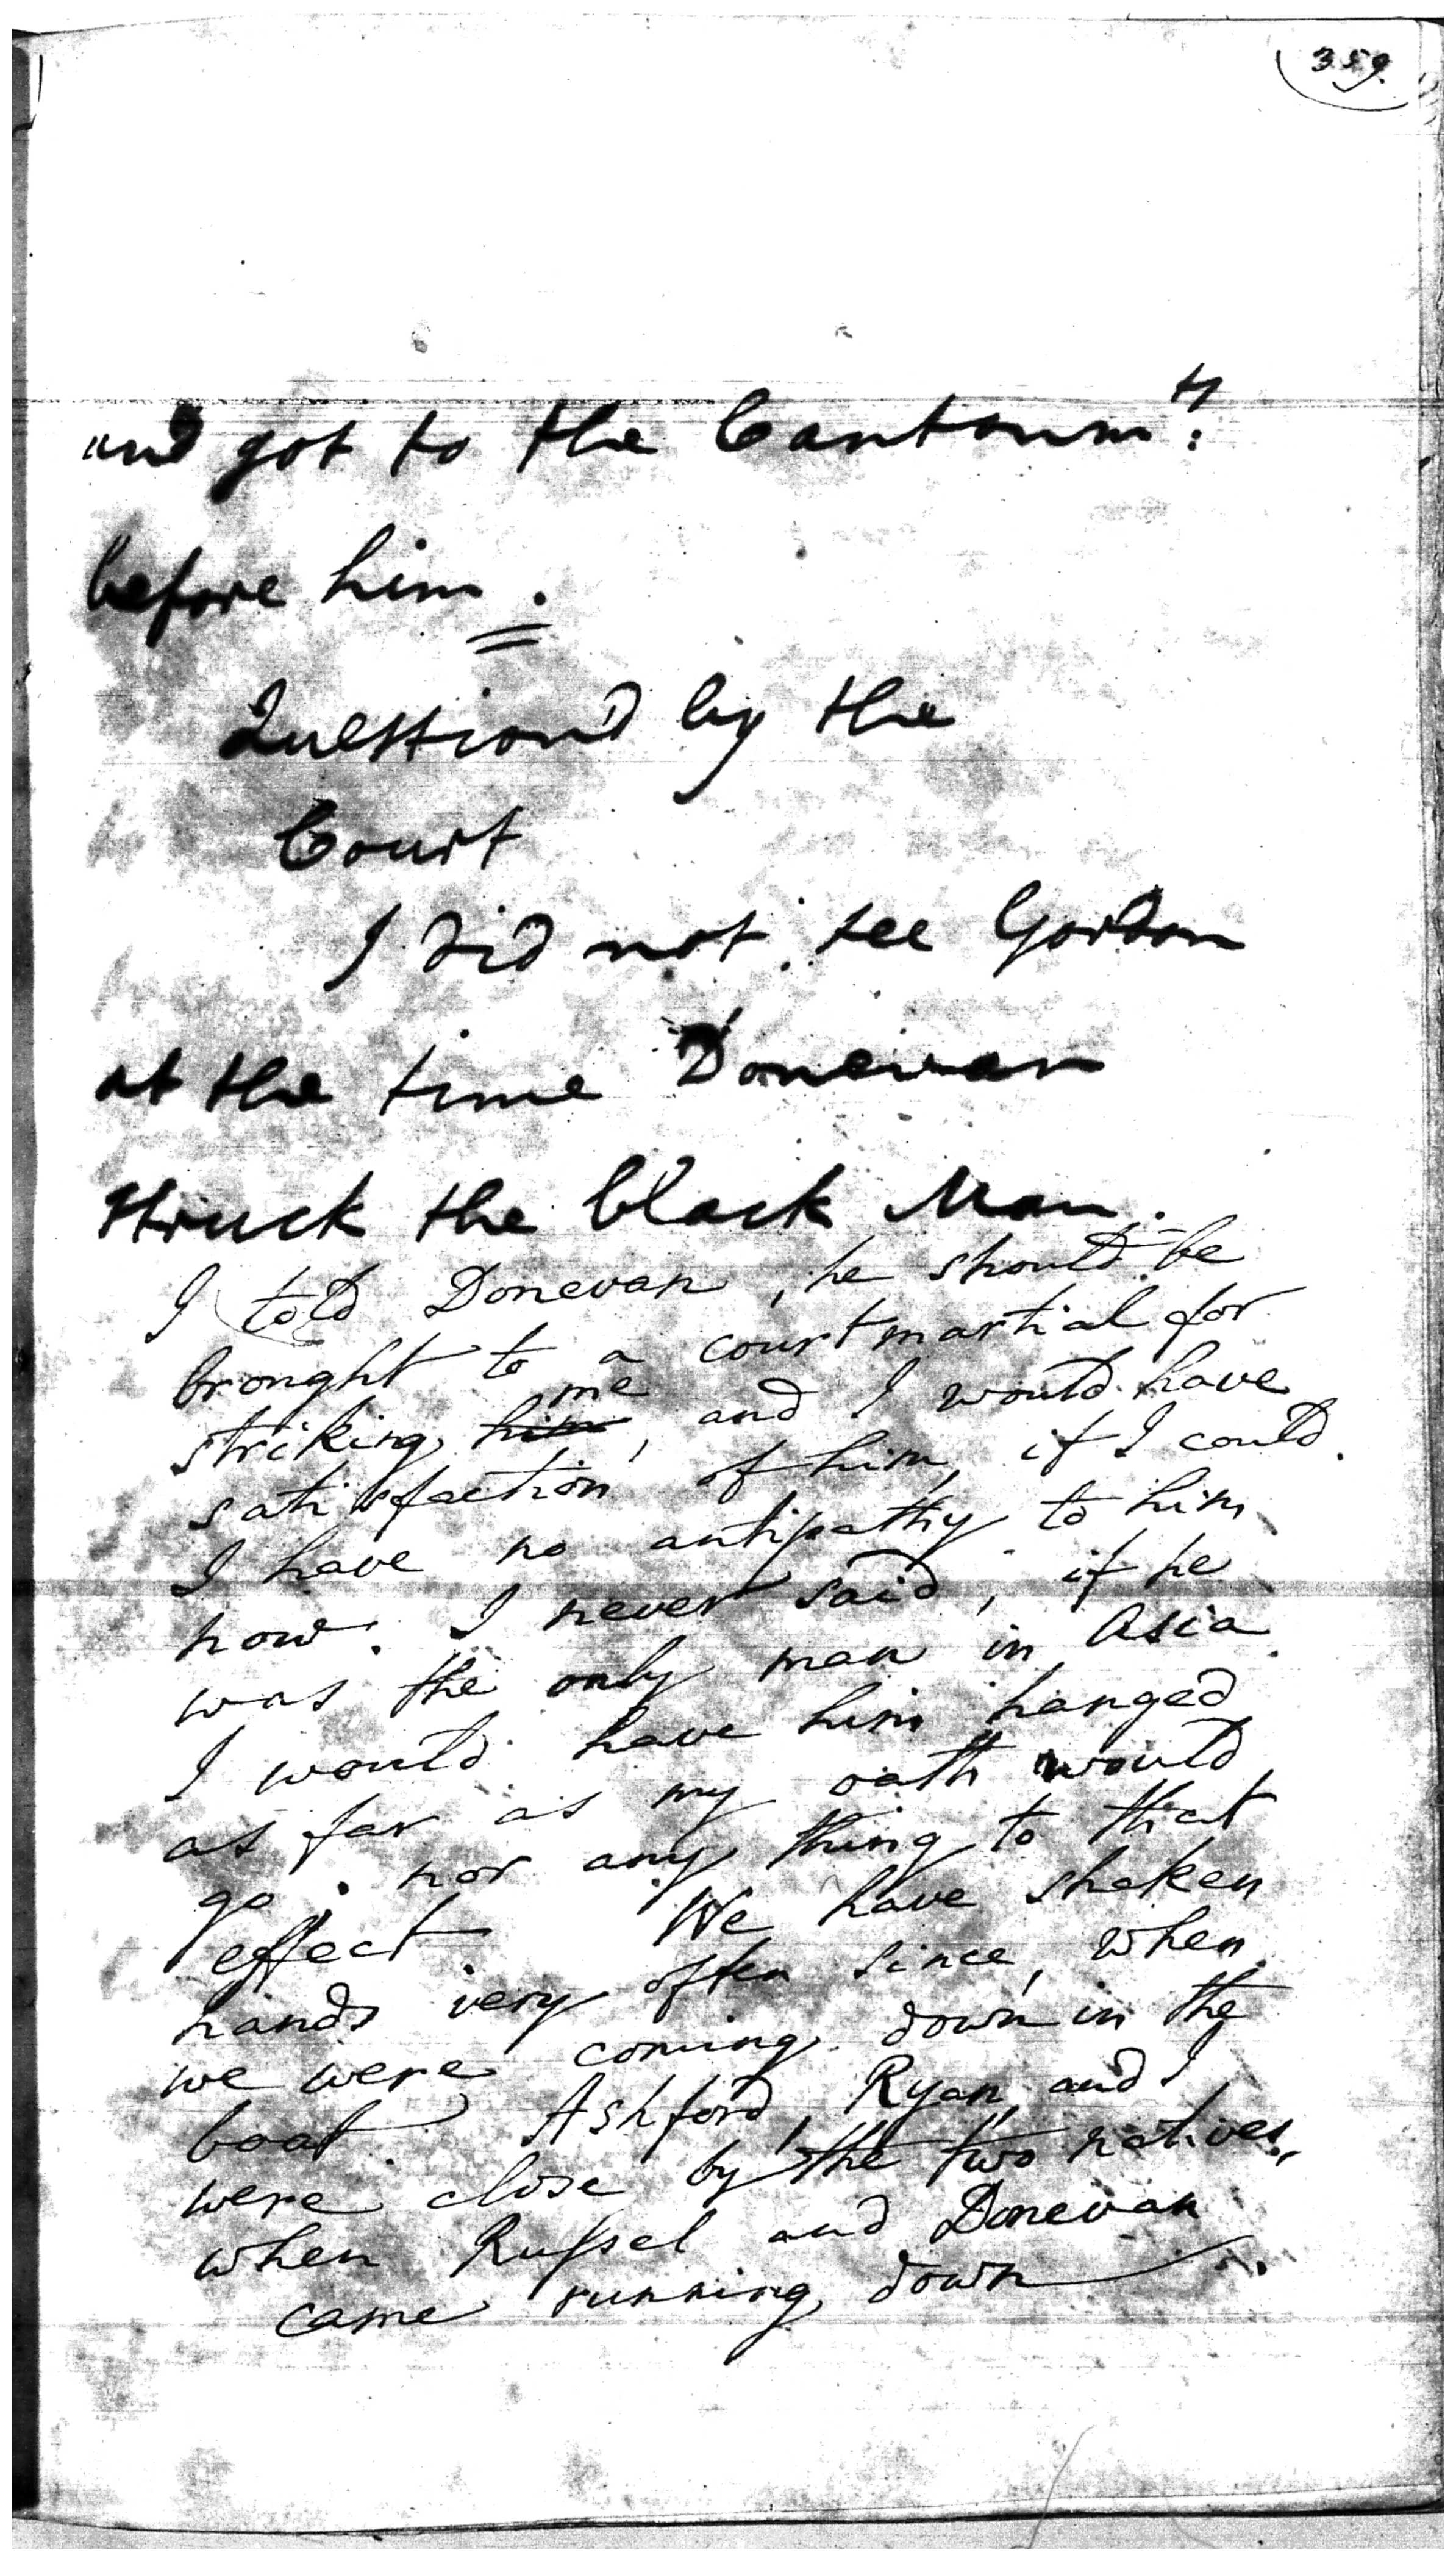 359.
and got to the Cantonm.ts
before him.
Question'd by the
Court
I did not see Gordon
at the time Donevan
struck the black Man.
I told Donevan, he should be
brought to a court martial for
me
striking him, and I would have
satisfaction of him, if I could.
I have no antipathy to him
now. I never said, if he
was the only man in Asia
I would have him hanged
as far as my oath would
go, nor any thing to that
effect. We have shaken
hands very often since, when
we were coming down in the
boat. Ashford, Ryan, and I
were close by the two natives,
when Russel and Donevan
came running down